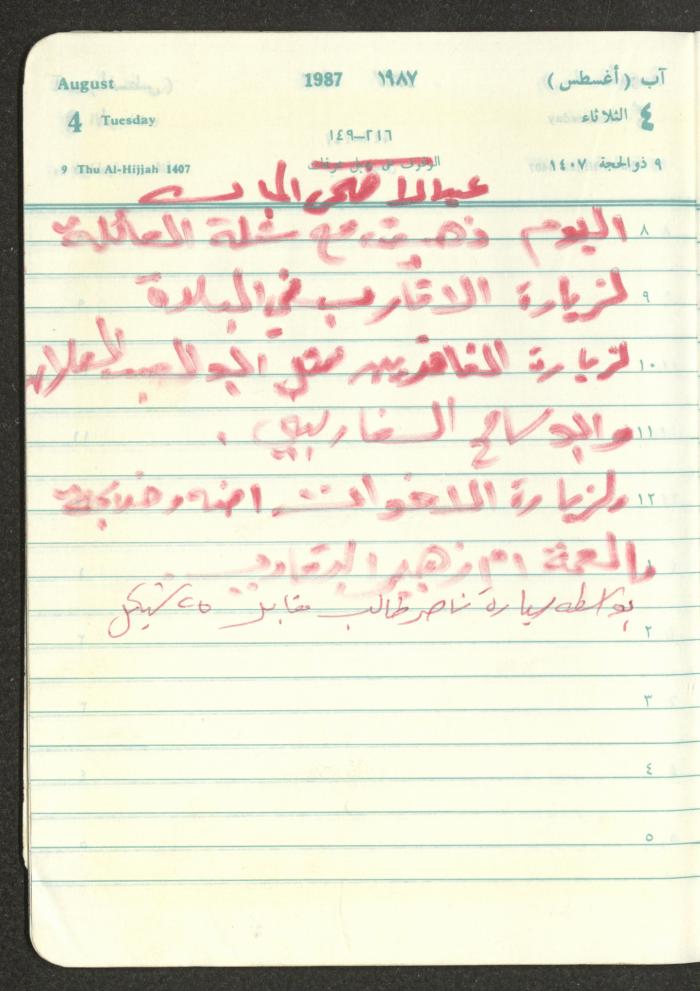 August 1987 ١٩٨٧ آب (أغسطس)
4 Tuesday ٤ الثلاثاء
٢١٦–١٤٩
9 Thu Al-Hijjah 1407 الوقوف على جبل عرفات ٩ ذو الحجة ١٤٠٧
عيد الاضحى المبارك
٨ اليوم ذهبت مع شلة العائلة
٩ لزيارة الاقارب في البلدة
١٠ لزيارة الفاقدين مثل
١١ وابو سامح
١٢ ولزيارة الاخوات
١ والعمة ام زهير
بواسطة سيارة ناصر طالب مقابل ٢٥ شيكل
٢
٣
٤
٥